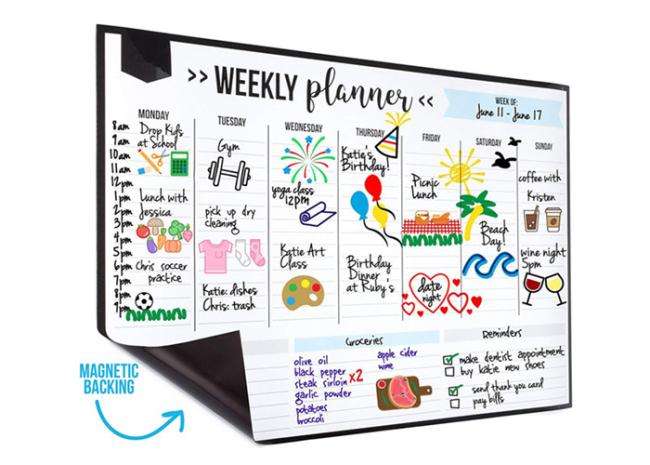 >> WEEKLY planner <<
WEEK OF:
June 11 - June 17
MONDAY
TUESDAY
WEDNESDAY
THURSDAY
FRIDAY
SATURDAY
SUNDAY
8am
9am
10am
11am
12pm
1pm
2pm
3pm
4pm
5pm
6pm
7pm
8pm
9pm
Drop Kids
at School
Lunch with
Jessica
Chris soccer
practice
Gym
pick up dry
cleaning
Katie: dishes
Chris: trash
yoga class
12pm
Katie Art
Class
Katie's
Birthday!
Birthday
Dinner
at Ruby's
Picnic
Lunch
date
night
Beach
Day!
coffee with
Kristen
wine night
5pm
Groceries
olive oil
black pepper
steak sirloin x2
garlic powder
potatoes
broccoli
apple cider
wine
Reminders
make dentist appointment
buy katie new shoes
send thank you card
pay bills
MAGNETIC
BACKING